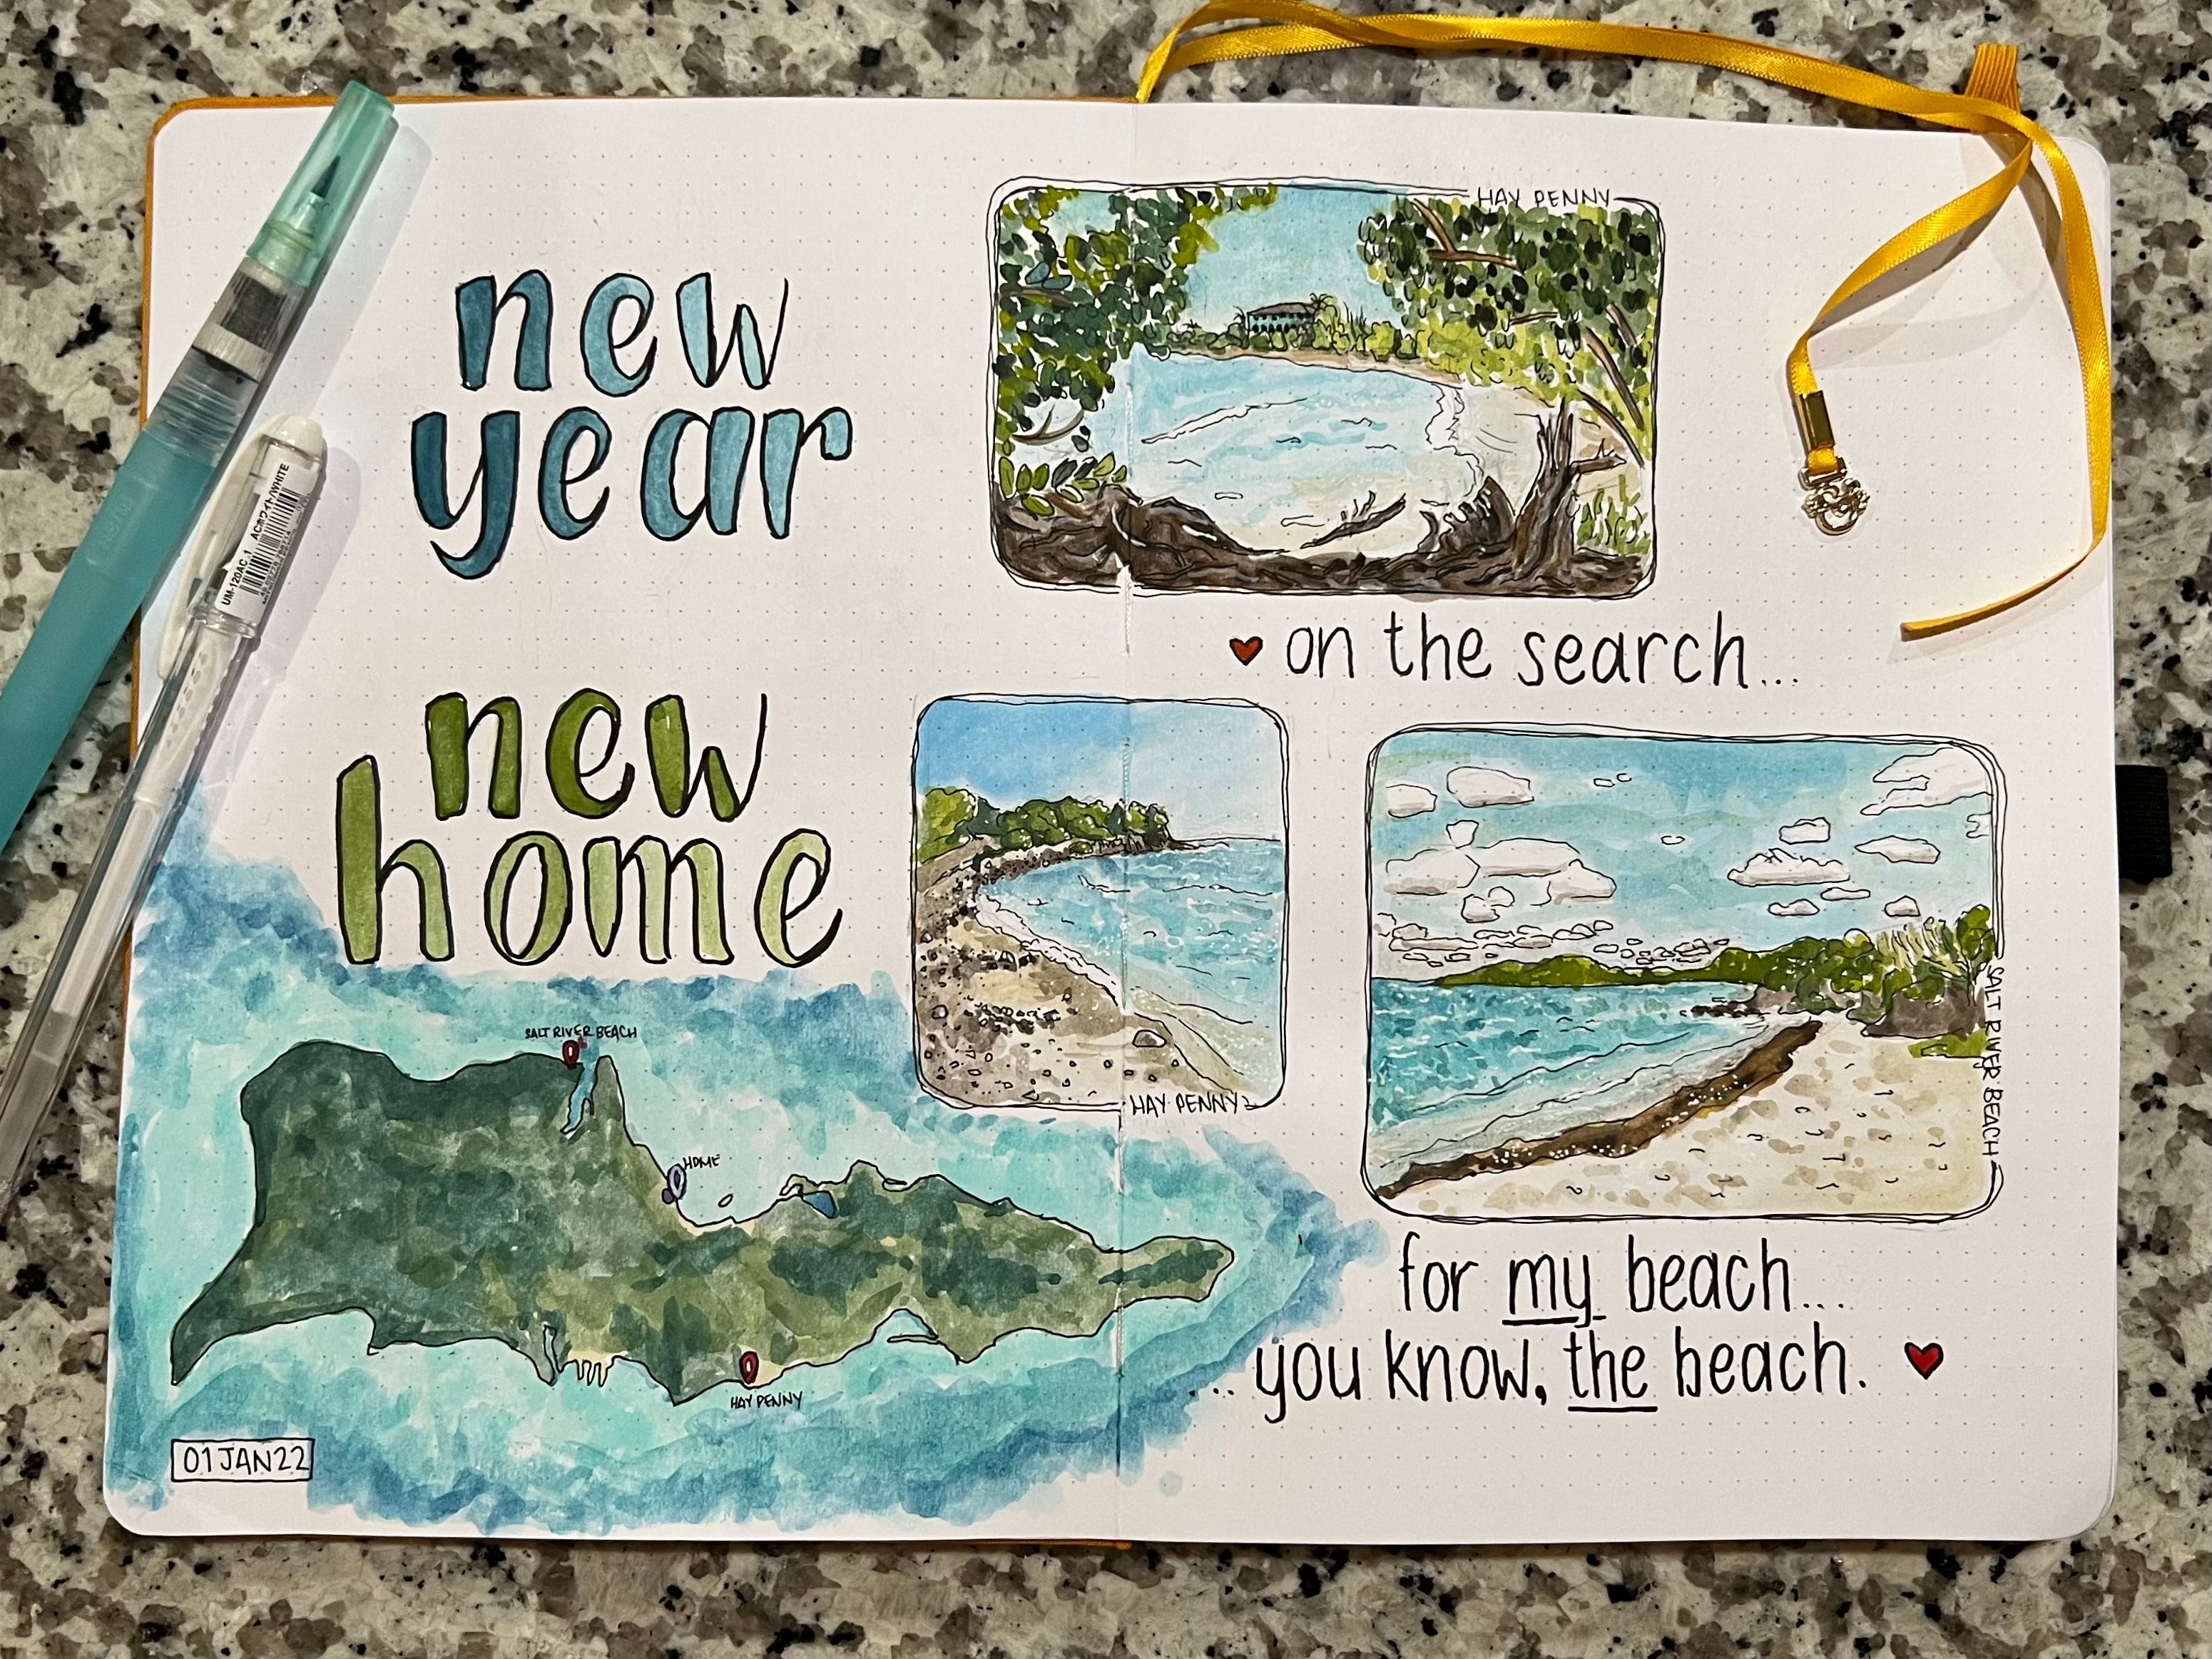 new
year
new
home
SALT RIVER BEACH
HOME
HAY PENNY
01JAN22
HAY PENNY
on the search...
HAY PENNY
SALT RIVER BEACH
for my beach...
...you know, the beach.
UM-120AC-1 ACホワイト/WHITE